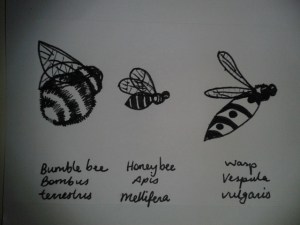 Bumble bee
Bombus
terrestris
Honeybee
Apis
Mellifera
Wasp
Vespula
vulgaris